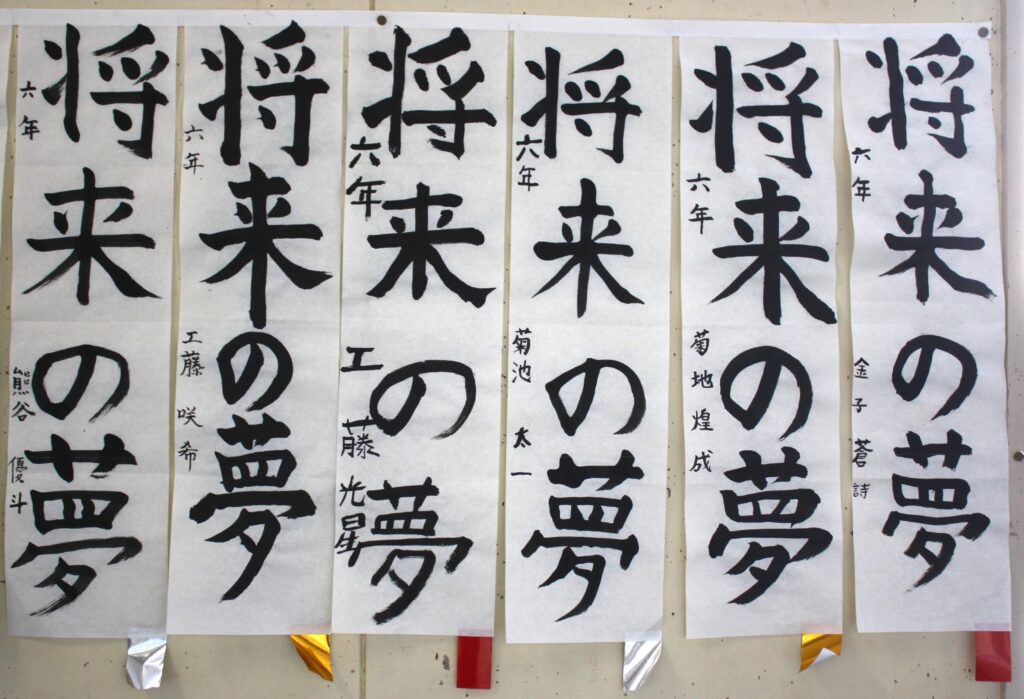 将来の夢
六年 金子 蒼詩
将来の夢
六年 菊地 煌成
将来の夢
六年 菊池 太一
将来の夢
六年 工藤 光星
将来の夢
六年 工藤 咲希
将来の夢
六年 熊谷 優斗